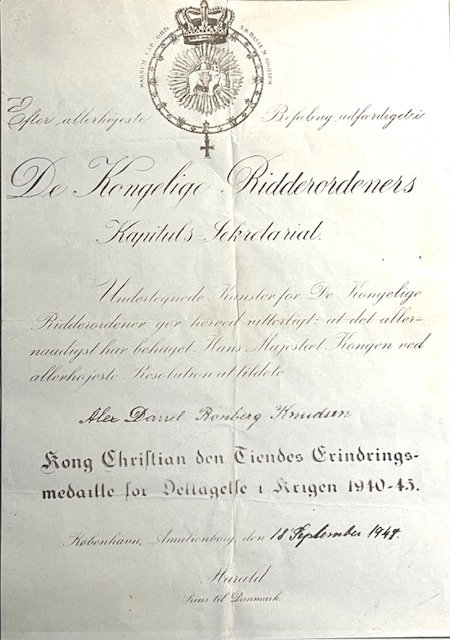 MAGNUM CAP. ORD.
Efter allerhøjeste Befaling udfærdiget i
De Kongelige Ridderordeners
Kapituls-Sekretariat.
Undertegnede Kansler for De Kongelige
Ridderordener gør herved vitterligt: at det aller-
naadigst har behaget Hans Majestæt Kongen ved
allerhøjeste Resolution at tildele
Darrel Knudsen
Kong Christian den Tiendes Erindrings-
medaille for Deltagelse i Krigen 1940-45.
København, Amalienborg, den 18 September
Harald
Prins til Danmark.